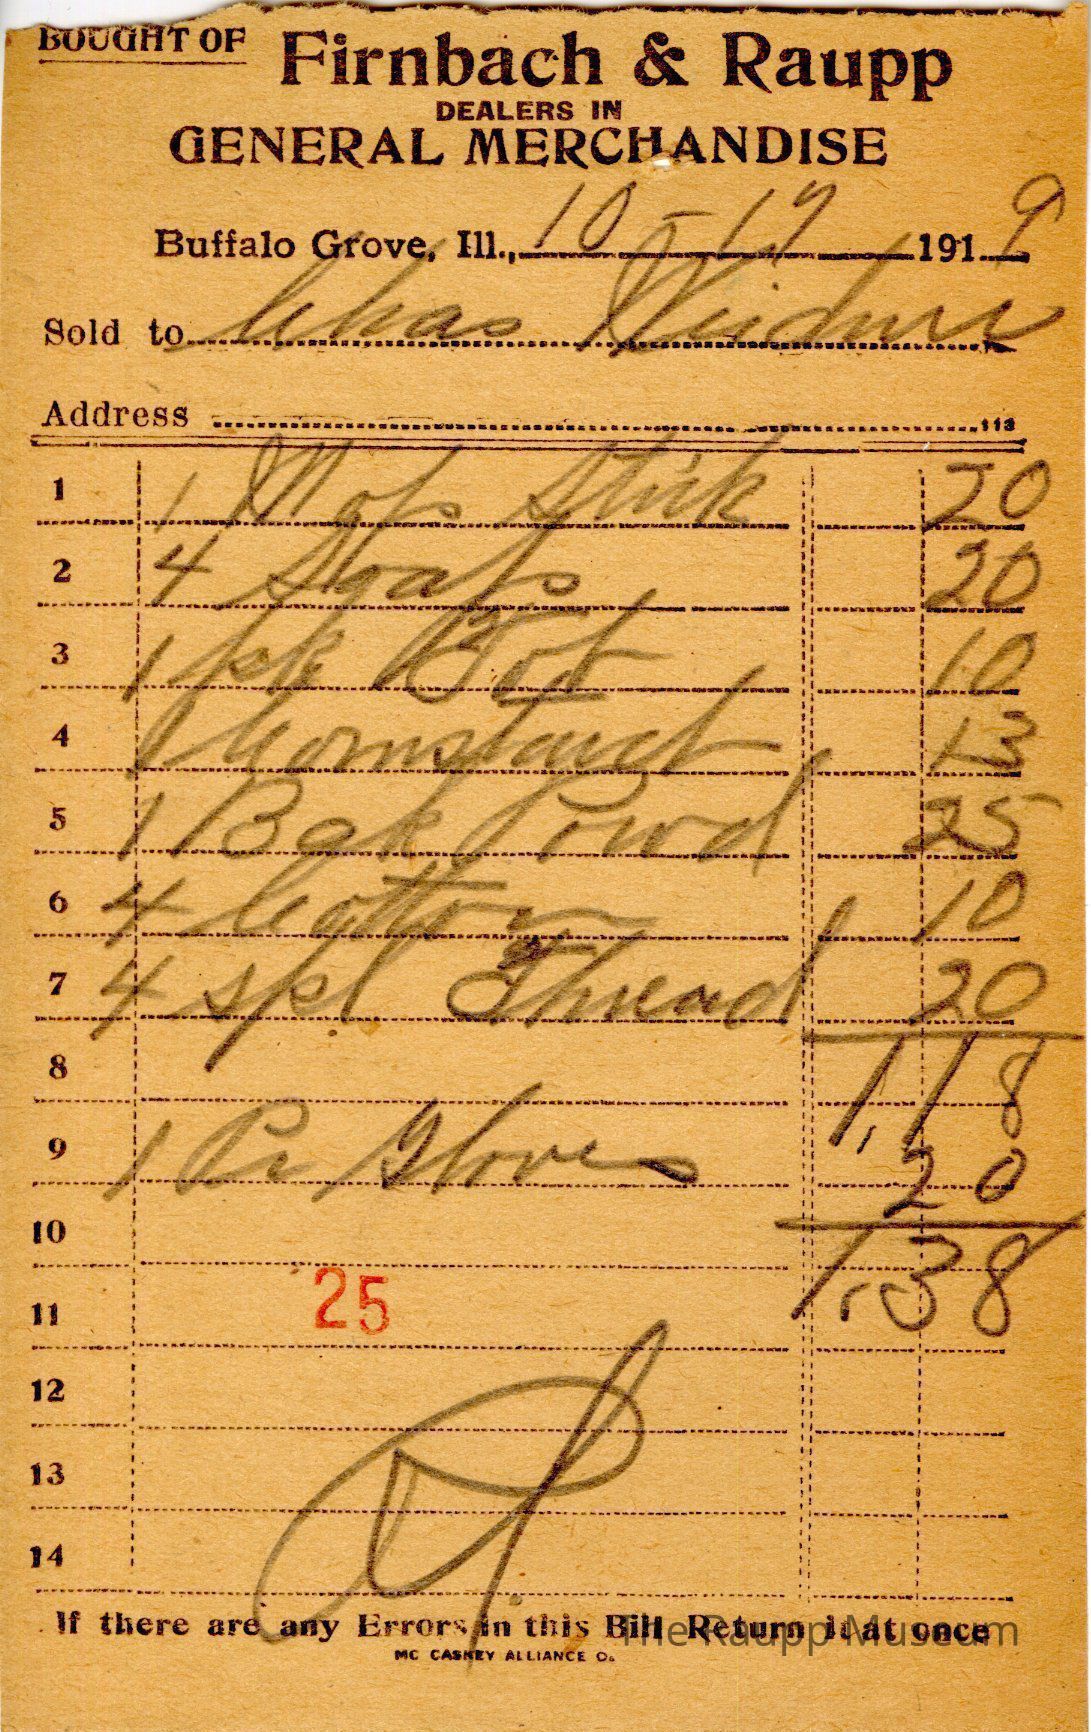 BOUGHT OF Firnbach & Raupp
DEALERS IN
GENERAL MERCHANDISE
Buffalo Grove, Ill., 10-19 1919
Sold to Chas Weidner
Address 113
1 1 Mop Stick 20
2 4 Soaps 20
3 1 pk Tob 10
4 1 Cornstarch 13
5 1 Bak Powd 25
6 4 Cotton 10
7 4 spl Thread 20
8 1,18
9 1 Pr Gloves 20
10 1.38
11 25
12
13
14
If there are any Errors in this Bill Return it at once
The Raupp Museum
MC CASKEY ALLIANCE O.